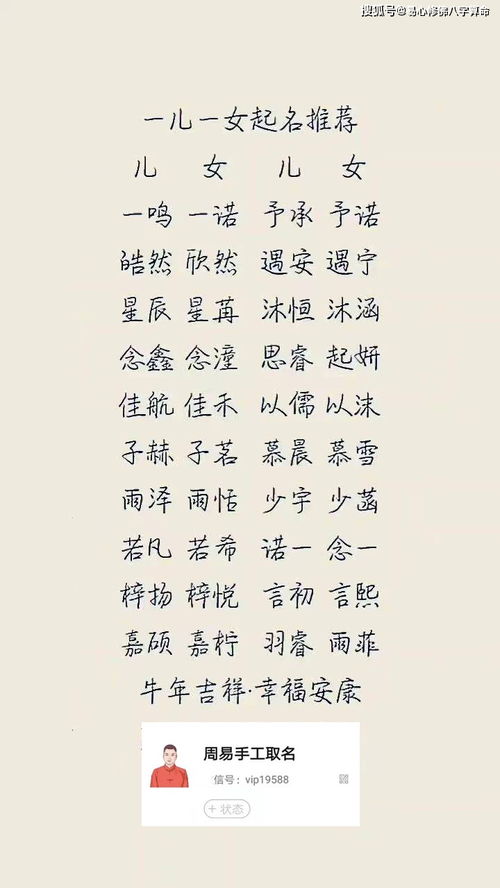 搜狐号@易心修佛八字算命
一儿一女起名推荐
儿 女 儿 女
一鸣 一诺 予承 予诺
皓然 欣然 遇安 遇宁
星辰 星苒 沐恒 沐涵
念鑫 念潼 思睿 起妍
佳航 佳禾 以儒 以沫
子赫 子茗 慕晨 慕雪
雨泽 雨恬 少宇 少菡
若凡 若希 诺一 念一
梓扬 梓悦 言初 言熙
嘉硕 嘉柠 羽睿 雨菲
牛年吉祥·幸福安康
周易手工取名
信号：vip19588
+ 状态